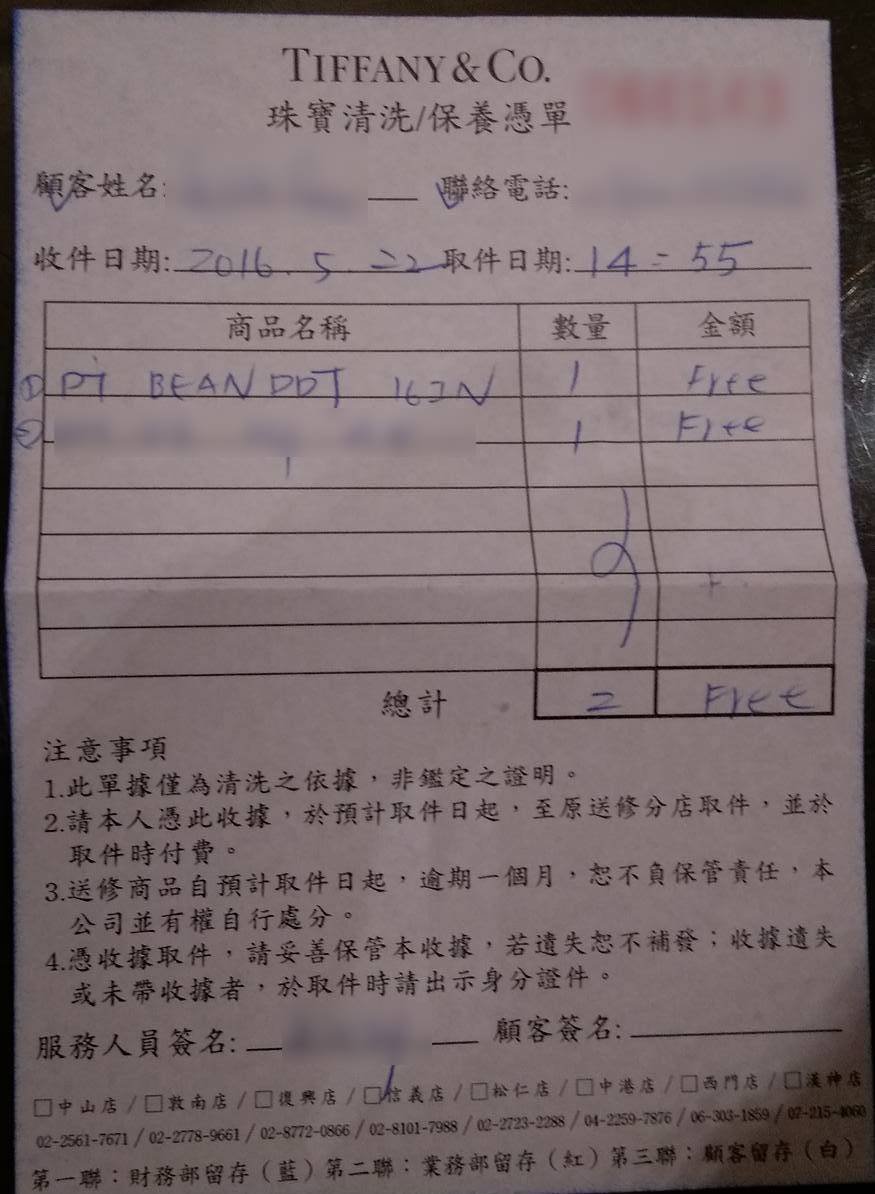 TIFFANY & CO.
珠寶清洗/保養憑單
顧客姓名: 聯絡電話:
收件日期: 2016.5.22 取件日期: 14:55
商品名稱 數量 金額
① PT BEAN PDT 16IN 1 Free
② 1 Free
總計 2 Free
注意事項
1.此單據僅為清洗之依據，非鑑定之證明。
2.請本人憑此收據，於預計取件日起，至原送修分店取件，並於
取件時付費。
3.送修商品自預計取件日起，逾期一個月，恕不負保管責任，本
公司並有權自行處分。
4.憑收據取件，請妥善保管本收據，若遺失恕不補發；收據遺失
或未帶收據者，於取件時請出示身分證件。
服務人員簽名: 顧客簽名:
□中山店 / □敦南店 / □復興店 / □信義店 / □松仁店 / □中港店 / □西門店 / □漢神店
02-2561-7671 / 02-2778-9661 / 02-8772-0866 / 02-8101-7988 / 02-2723-2288 / 04-2259-7876 / 06-303-1859 / 07-215-4060
第一聯：財務部留存（藍）第二聯：業務部留存（紅）第三聯：顧客留存（白）